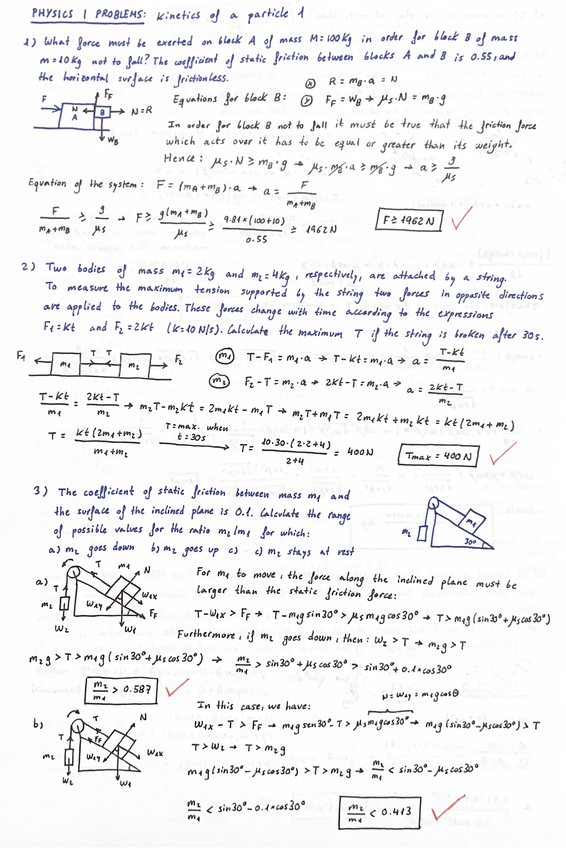 PHYSICS I PROBLEMS: Kinetics of a particle 1
1) What force must be exerted on block A of mass M=100Kg in order for block B of mass
m=10Kg not to fall? The coefficient of static friction between blocks A and B is 0.55, and
the horizontal surface is frictionless.
Ⓧ R = mB·a = N
Equations for block B: Ⓨ FF = WB → μs·N = mB·g
F N A B FF N=R WB
In order for block B not to fall it must be true that the friction force
which acts over it has to be equal or greater than its weight.
Hence: μs·N ≥ mB·g → μs·mB·a ≥ mB·g → a ≥ g/μs
Equation of the system: F = (mA+mB)·a → a = F/(mA+mB)
F/(mA+mB) ≥ g/μs → F ≥ g(mA+mB)/μs ≥ 9.81×(100+10)/0.55 ≥ 1962N
F ≥ 1962 N
2) Two bodies of mass m1=2Kg and m2=4Kg, respectively, are attached by a string.
To measure the maximum tension supported by the string two forces in opposite directions
are applied to the bodies. These forces change with time according to the expressions
F1=Kt and F2=2Kt (K=10N/s). Calculate the maximum T if the string is broken after 30s.
F1 m1 T T m2 F2
m1 T-F1=m1·a → T-Kt=m1·a → a = (T-Kt)/m1
m2 F2-T=m2·a → 2Kt-T=m2·a → a = (2Kt-T)/m2
(T-Kt)/m1 = (2Kt-T)/m2 → m2T-m2Kt = 2m1Kt-m1T → m2T+m1T = 2m1Kt+m2Kt = Kt(2m1+m2)
T = Kt(2m1+m2)/(m1+m2) T=max. when t=30s → T = 10·30·(2·2+4)/(2+4) = 400N
Tmax = 400N
3) The coefficient of static friction between mass m1 and
the surface of the inclined plane is 0.1. Calculate the range
of possible values for the ratio m2/m1 for which:
a) m2 goes down b) m2 goes up c) c) m2 stays at rest
m2 m1 30°
a) T m1 N T m2 W1y W1x FF W2 W1
For m1 to move, the force along the inclined plane must be
larger than the static friction force:
T-W1x > FF → T-m1gsin30° > μsm1gcos30° → T > m1g(sin30°+μscos30°)
Furthermore, if m2 goes down, then: W2 > T → m2g > T
m2g > T > m1g(sin30°+μscos30°) → m2/m1 > sin30°+μscos30° > sin30°+0.1×cos30°
m2/m1 > 0.587
In this case, we have:
N=W1y=m1gcosθ
b) T N T FF m2 W1y W1x W2 W1
W1x-T > FF → m1gsen30°-T > μsm1gcos30° → m1g(sin30°-μscos30°) > T
T > W2 → T > m2g
m1g(sin30°-μscos30°) > T > m2g → m2/m1 < sin30°-μscos30°
m2/m1 < sin30°-0.1×cos30°
m2/m1 < 0.413